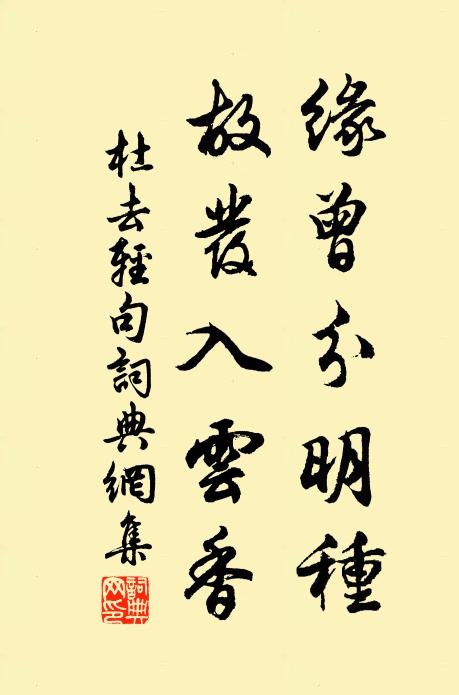 緣曾分明種
故發入雲香
杜去輕句詞典網集
詞典網印